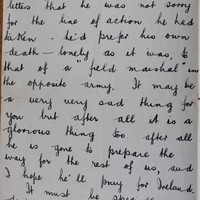 letters that he was not sorry
for the line of action he had
taken - he'd prefer his own
death - lonely as it was, to
that of a "field marshal" in
the opposite army. It may be
a very very sad thing for
you but after all it is a
glorious thing too after all
he is gone to prepare the
way for the rest of us, and
I hope he'll pray for Ireland.
It must be